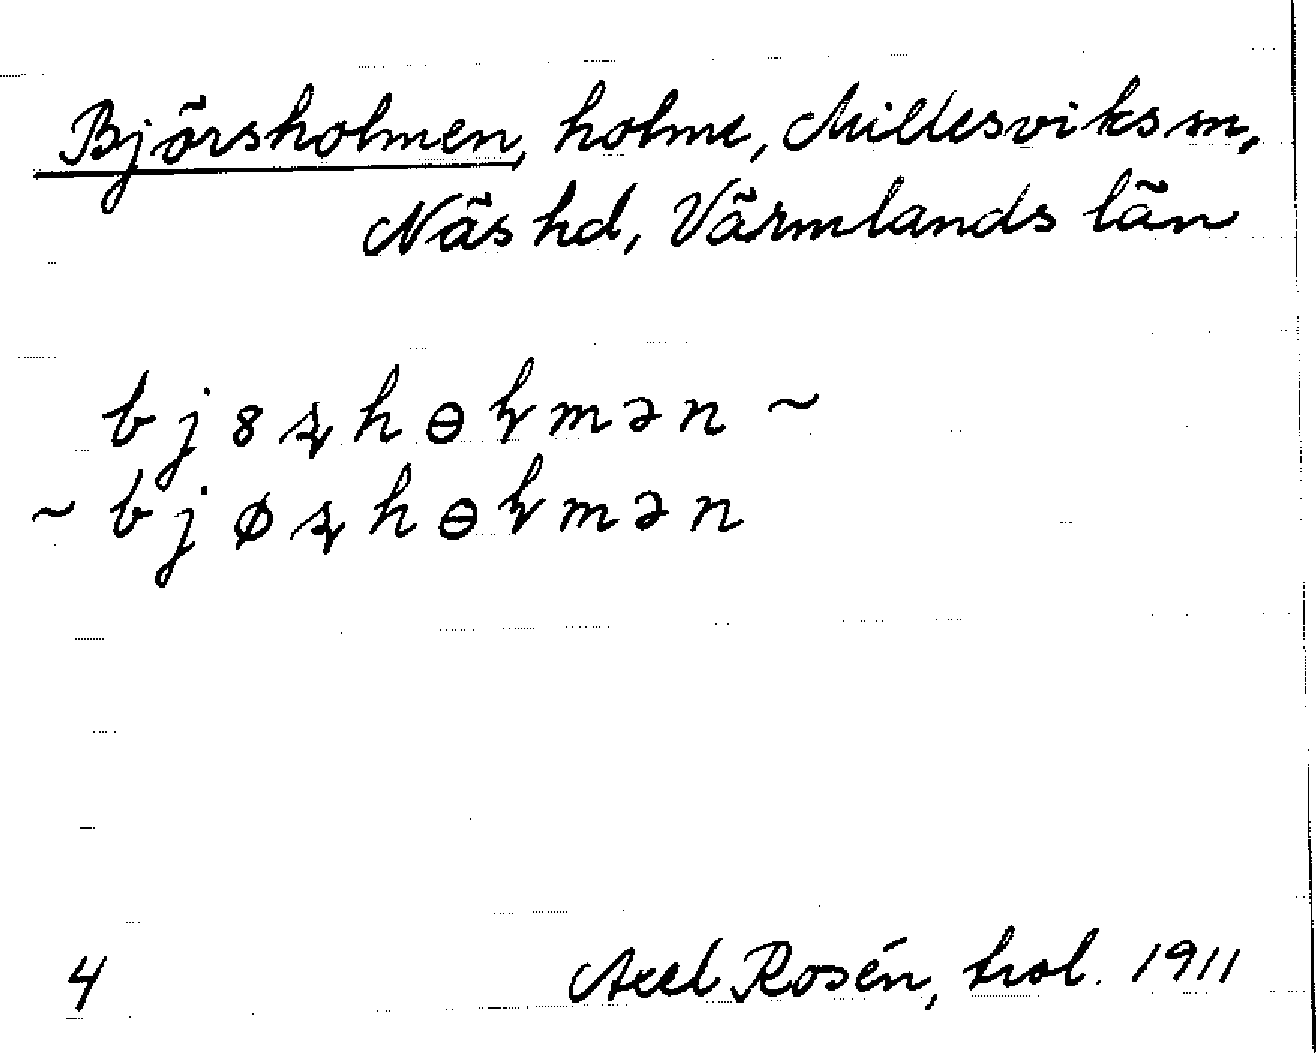 Björsholmen, holme, Millesviks sn,
Näs hd, Värmlands län
bj8ʂhɵɽmən ~
~ bjøʂhɵɽmən
4 Axel Rosén, trol. 1911